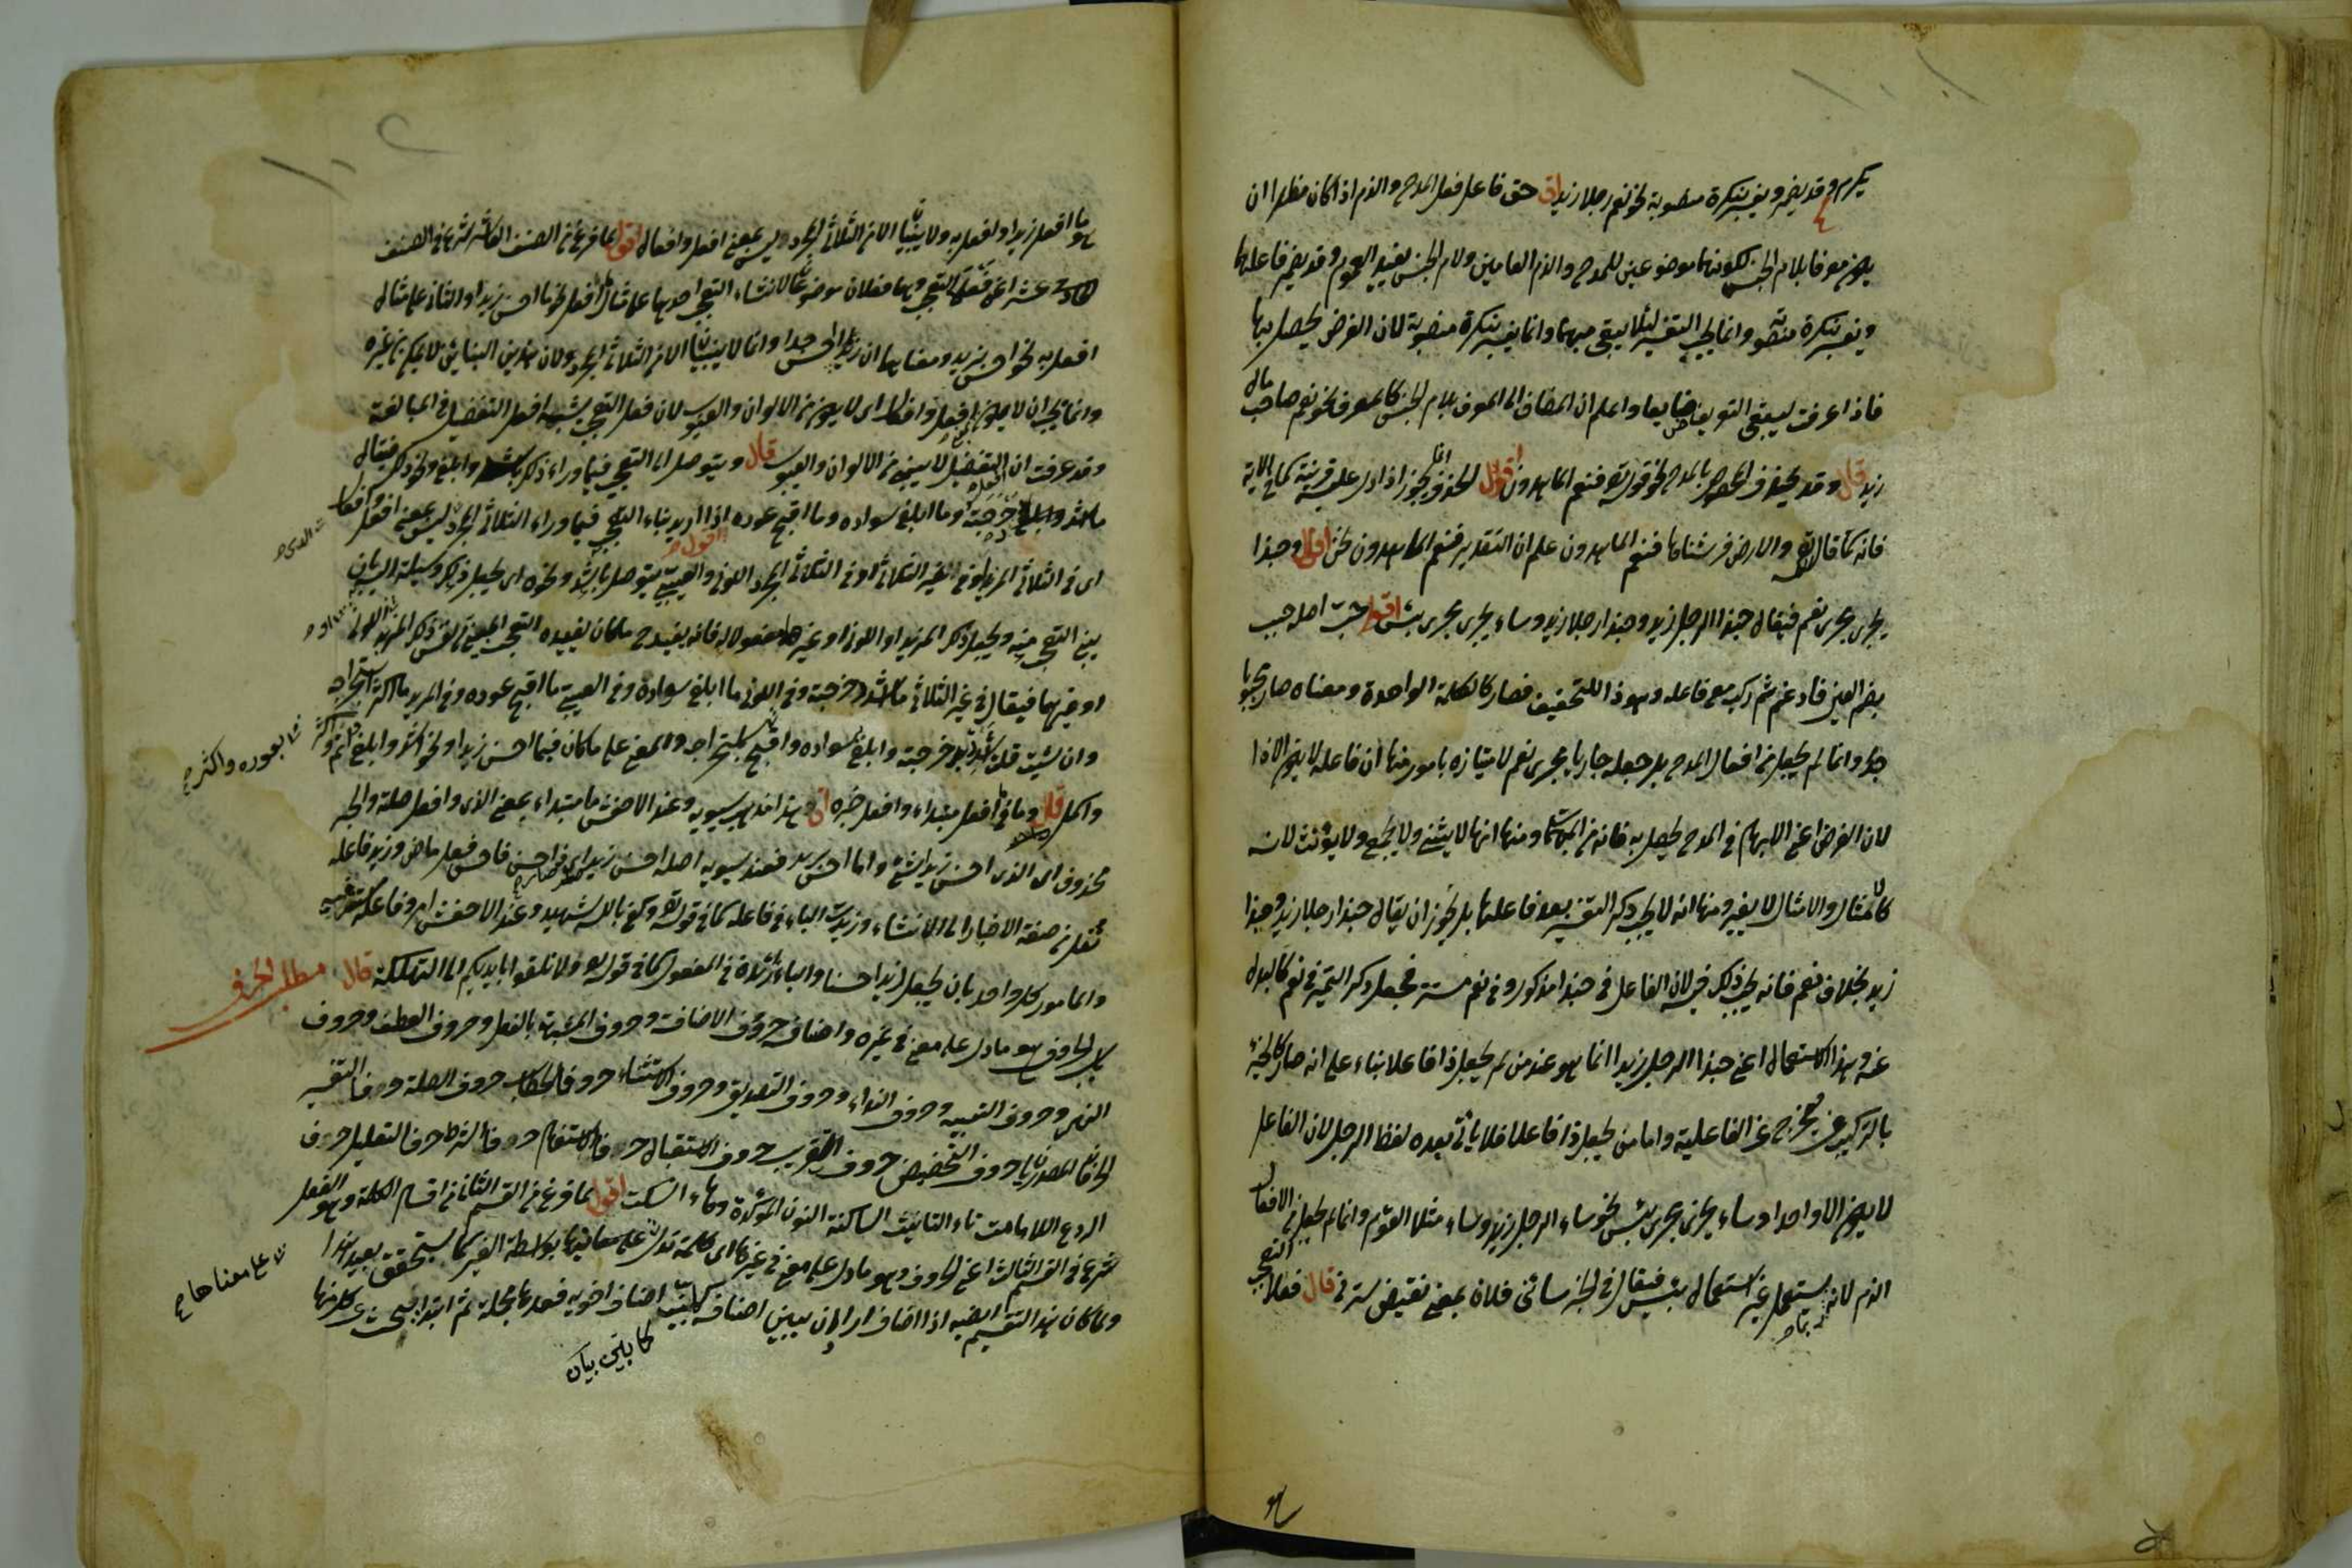 يكرم وقد يضمر ويفسر بنكرة منصوبة نحو نعم رجلا زيد اق حق فاعل فعل المدح والذم اذا كان مظهرا ان
يكون معرفا بلام الجنس لكونهما موضوعين للمدح والذم العامين ولام الجنس يفيد العموم وقد يضمر فاعلها
ويفسر بنكرة منصوبة وانما يجب التفسير لئلا يبقى مبهما وانما يفسر بنكرة منصوبة لان الغرض يحصل بها
فاذا عرفت ليبقى التعريف ضايعا واعلم ان المضاف الى المعرف بلام الجنس كالمعرف نحو نعم صاحب مال
زيد قال وقد يحذف المخصوص بالمدح نحو قوله تعالى فنعم الماهدون اقول الحذف انما يجوز اذا دل عليه قرينة كما في الاية
فانه لما قال تعالى والارض فرشناها فنعم الماهدون علم ان التقدير فنعم الماهدون نحن اقول وحبذا
يجرى مجرى نعم فيقال حبذا الرجل زيد وحبذا رجلا زيد وساء يجرى مجرى بئس اقول حب اصله حبب
بضم العين فادغم ثم ركب مع فاعله وهو ذا للتخفيف فصار كالكلمة الواحدة ومعناه صار محبوبا
جدا وانما لم يجعل من افعال المدح بل جعله جاريا مجرى نعم لامتيازه بامور منها ان فاعله لا يكون الا ذا
لان الغرض اعنى الابهام في المدح يحصل به فانه من المبهمات ومنها انها لا يثنى ولا يجمع ولا يؤنث لانه
كالامثال والامثال لا يغير ومنها انه لا يجب ذكر التفسير بعد فاعلها بل يجوز ان يقال حبذا رجلا زيد وحبذا
زيد بخلاف نعم فانه يجب ذلك فيه لان الفاعل في حبذا مذكور وفى نعم مستتر فجعل ذكر التميز في نعم كالبدل
عنه وهذا الاستعمال اعنى حبذا الرجل زيد انما هو عند من لم يجعل ذا فاعلا بناء على انه صار كالجزء
بالتركيب فيخرج عن الفاعلية واما من يجعل ذا فاعلا فلا ياتى بعده لفظ الرجل لان الفاعل
لا يكون الا واحدا وساء يجرى مجرى بئس نحو ساء الرجل زيد وساء مثلا القوم وانما لم يجعل من الافعال
الذم لانه يستعمل غير استعمال بئس فيقال في الخبر ساءنى فلان بمعنى نقيض سرنى قال فعلا التعجب
هو
هما ما افعل زيدا وافعل به ولا يبنيان الا من الثلاثى المجرد ليس بمعنى افعل وافعال اقول لما فرغ من الصنف العاشر شرع في الصنف
الحادى عشر اعنى فعلى التعجب وهما فعلان موضوعان لانشاء التعجب احدهما على مثال ما افعل نحو ما احسن زيدا والثانى على مثال
افعل به نحو احسن بزيد ومعناهما ان زيدا احسن جدا وانما لا يبنيان الا من الثلاثى المجرد لان هذين البنائين لا يمكن من غيره
وانما يجب ان لا يكون بمعنى افعل وافعال اى لا يكون من الالوان والعيوب لان فعل التعجب يشبه افعل التفضيل في المبالغة
وقد عرفت ان افعل التفضيل لا يبنى من الالوان والعيوب قال ويتوصل الى التعجب فيما وراء ذكر باشد وابلغ ونحو ذلك فيقال
ما اشد دحرجته وما ابلغ سواده وما اقبح عوره اقول اذا اريد بناء التعجب فيما وراء الثلاثى المجرد ليس بمعنى افعل وافعال
اى في الثلاثى المزيد وفى الغير الثلاثى او فى الثلاثى المجرد اللونى والعيبى يتوصل باشد ونحوه اى يجعل ذلك وسيلة الى بان
يبنى التعجب منه ويجعل ذكر المزيد او اللونى او غيرهما مفعولا له فانه يفيد ح ما كان يفيده التعجب المبنى من نفس ذكر المزيد اللونى
او غيرهما فيقال في غير الثلاثى ما اشد دحرجته وفى اللونى ما ابلغ سواده وفى العيبى ما اقبح عوره وفى المزيد ما اكثر استخراجه
وان شئت قلت اشدد بدحرجته وابلغ بسواده واقبح باستخراجه والمعنى على ما كان فيما احسن زيدا ونحو اشد وابلغ اتم
بعوره واكثر
واكمل قال وما في ما افعل مبتداء وافعل خبره اق هذا مذهب سيبويه وعند الاخفش ما مبتداء بمعنى الذى وافعل صلته والخبر
محذوف اى الذى احسن زيدا شئ واما احسن بزيد فعند سيبويه اصله احسن زيد اى صار ذا حسن فاحسن فعل ماض وزيد فاعله
نقل من صيغة الاخبار الى الانشاء وزيدت الباء في فاعله كما في قوله تعالى وكفى بالله شهيدا وعند الاخفش امر وفاعله مستتر فيه
والمامور كل واحد بان يجعل زيدا حسنا والباء زائدة في المفعول كما في قوله تعالى ولا تلقوا بايديكم الى التهلكة قال
مطلب الحرف
باب الحرف هو ما دل على معنى في غيره واصنافه حروف الاضافة وحروف المشبهة بالفعل وحروف العطف وحروف
النفى وحروف التنبيه وحروف النداء وحروف التصديق وحروف الاستثناء حرفا الخطاب حروف الصلة حرفا التفسير
الحرفان المصدريان حروف التحضيض حروف التقريب حروف الاستقبال حرفا الاستفهام حرفا الشرط حرف التعليل حرف
الردع اللامات تاء التانيث الساكنة النون المؤكدة وهاء السكت اقول لما فرغ من القسم الثانى من اقسام الكلمة وهو الفعل
شرع في القسم الثالث اعنى الحرف وهو ما دل على معنى في غيره اى كلمة تدل على معانيها بواسطة الغير كما يستحقق بعيد هذا
على معناها
ولما كان هذا التقسيم اراد ان يبين اصنافه كما بين اصناف اخويه فعدها مجملة ثم ابتدا يبحث عن كل منها